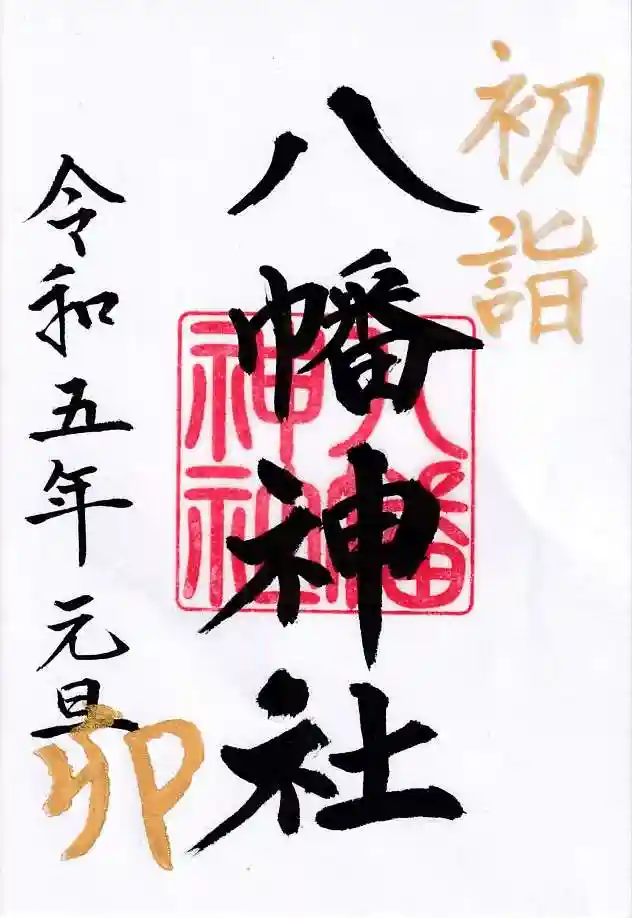 初詣
八幡神社
八幡神社
令和五年元旦
卯